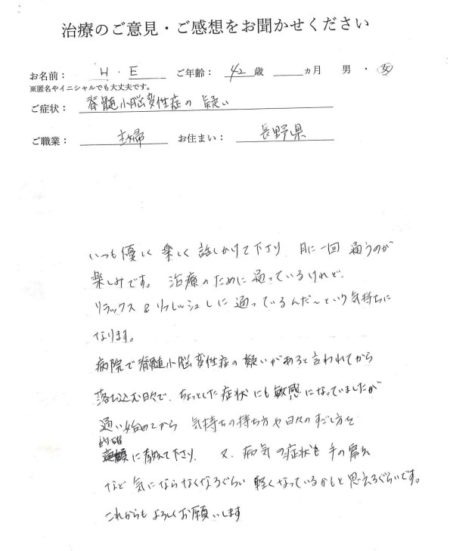 治療のご意見・ご感想をお聞かせください
お名前： H・E ご年齢： 42 歳 ヵ月 男・女
※匿名やイニシャルでも大丈夫です。
ご症状： 脊髄小脳変性症の疑い
ご職業： 主婦 お住まい： 長野県
いつも優しく楽しく話しかけて下さり 月に一回通うのが
楽しみです。 治療のために通っているけれど、
リラックス&リフレッシュしに通っているんだ〜という気持ちに
なります。
病院で脊髄小脳変性症の疑いがあると言われてから
落ち込む日々で、ちょっとした症状にも敏感になっていましたが
通い始めてから 気持ちの持ち方や日々のすごし方を
に教えて下さり、 又、病気の症状も手の
など気にならなくなるぐらい 軽くなっているかもと思えるぐらいです。
これからもよろしくお願いします